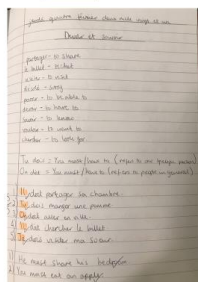 jeudi quinze février deux mille vingt et un
Devoir et pouvoir
partager - to share
le billet - ticket
visiter - to visit
désolé - sorry
pouvoir - to be able to
devoir - to have to
savoir - to know
vouloir - to want to
chercher - to look for
Tu dois = You must/have to (refers to one specific person)
On doit = You must/have to (refers to people in general)
1) Il doit partager sa chambre.
2) Tu dois manger une pomme.
3) On doit aller en ville.
4) doit chercher le billet
5) Je dois visiter ma soeur.
1) He must share his bedroom
2) You must eat an apple.